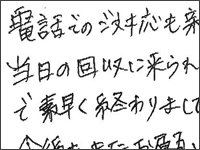 電話での対応も親
当日の回収に来られ
で素早く終わりまして